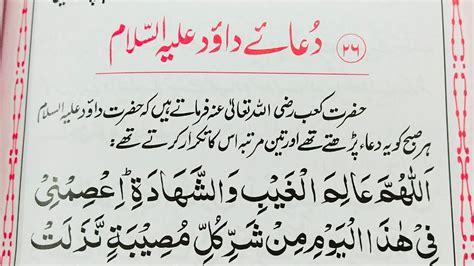 دُعائے داوٗد علیہ السّلام ﴿۲۶﴾
حضرت کعب رضی اللہ تعالیٰ عنہ فرماتے ہیں کہ حضرت داوٗد علیہ السلام
ہر صبح کو یہ دعاء پڑھتے تھے اور تین مرتبہ اس کا تکرار کرتے تھے:
اَللّٰهُمَّ عَالِمَ الْغَيْبِ وَالشَّهَادَةِ اِعْصِمْنِيْ
فِيْ هٰذَا الْيَوْمِ مِنْ شَرِّ كُلِّ مُصِيْبَةٍ نَّزَلَتْ